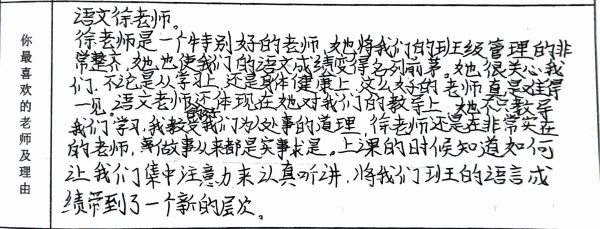 你最喜欢的老师及理由
语文徐老师。
徐老师是一个特别好的老师,她将我们的班级管理的非
常整齐,她也使我们的语文成绩变得名列前茅。她很关心我
们,不论是从学习上,还是身体健康上,这么好的老师真是难得
一见。语文老师还体现在她对我们的教导上,她不只教导
我们学习,我教我们为处事的道理,徐老师还是在非常实在
的老师,做事从来都是实事求是。上课的时候知道如何
让我们集中注意力来认真听讲,将我们班王的语言成
绩带到了一个新的层次。